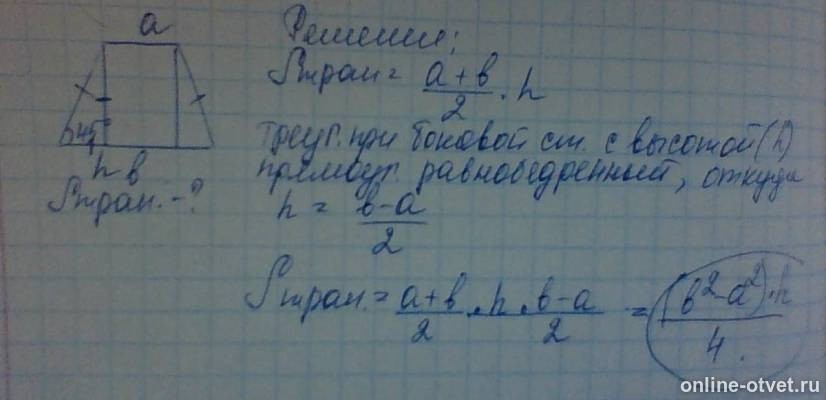 a
45
h b
Sтрап. -?
Решение:
Sтрап = a+b/2 · h
треуг. при боковой ст. с высотой (h)
прямоуг. равнобедренный, откуда
h = b-a/2
Sтрап. = a+b/2 · h · b-a/2 = (b²-a²)·h/4.
online-otvet.ru